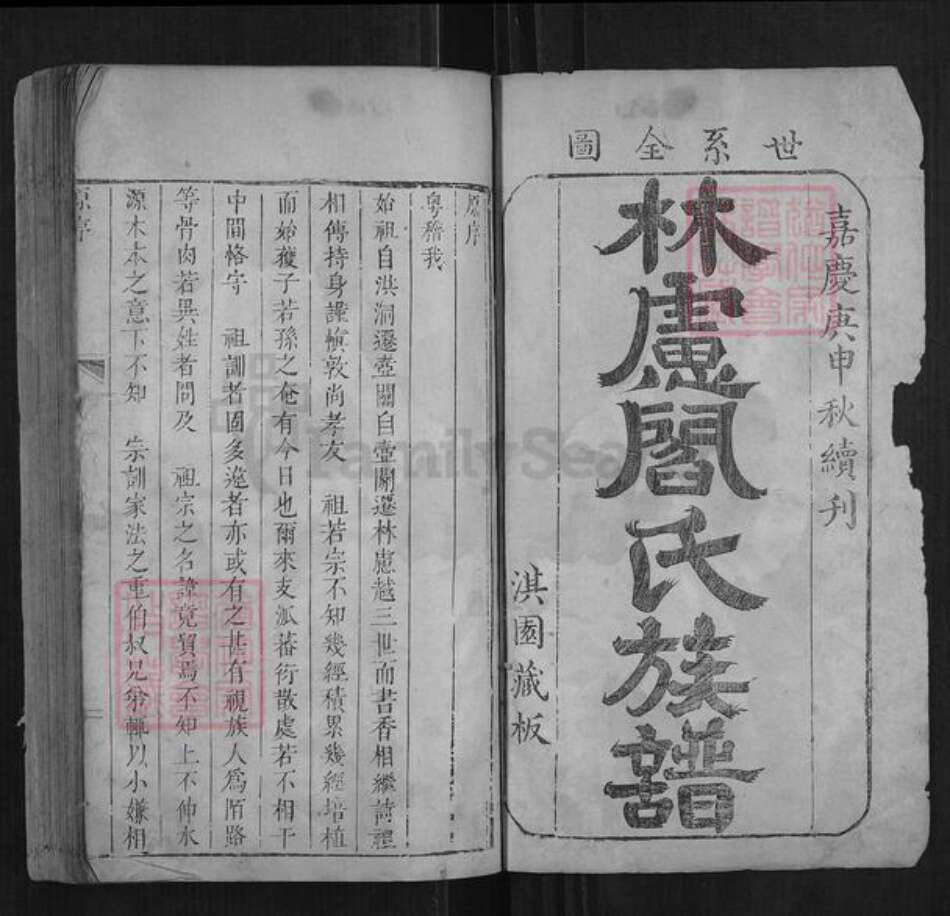 世系全圖
嘉慶庚申秋續刊
林慮閻氏族譜
淇園藏板
原序
粵稽我
始祖自洪洞遷壺關自壺關遷林慮越三世而書香相繼詩禮
相傳持身謹慎敦尚孝友　祖若宗不知幾經積累幾經培植
而始獲子若孫之奄有今日也爾來支派蕃衍散處若不相干
中間恪守　祖訓者固多邈者亦或有之甚有視族人為陌路
等骨肉若異姓者問及　祖宗之名諱竟貿焉不知上不伸水
源木本之意下不知　宗訓家法之重伯叔兄弟輒以小嫌相
原序
FamilySearch